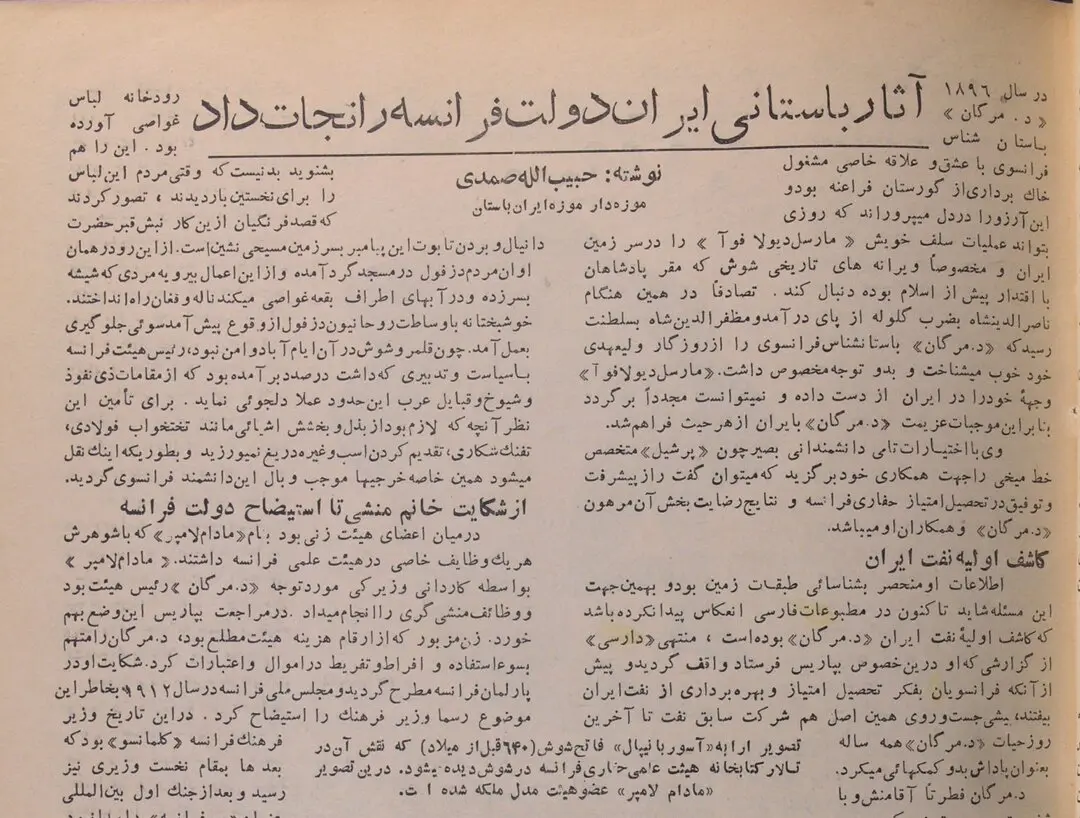 آثار باستانی ایران دولت فرانسه را نجات داد
نوشته: حبیب‌الله صمدی
موزه‌دار موزه ایران باستان
در سال ۱۸۹۶
«د. مرگان»
باستان شناس
فرانسوی با عشق و علاقه خاصی مشغول
خاك برداری از گورستان فراعنه بود و
این آرزو را در دل میپروراند که روزی
بتواند عملیات سلف خویش «مارسل دیولافوآ» را در سر زمین
ایران و مخصوصاً ویرانه های تاریخی شوش که مقر پادشاهان
با اقتدار پیش از اسلام بوده دنبال کند. تصادفاً در همین هنگام
ناصرالدینشاه بضرب گلوله از پای در آمد و مظفرالدین شاه بسلطنت
رسید که «د.مرگان» باستانشناس فرانسوی را از روزگار ولیعهدی
خود خوب میشناخت و بدو توجه مخصوص داشت. «مارسل دیولافوآ»
وجههٔ خود را در ایران از دست داده و نمیتوانست مجدداً برگردد
بنابراین موجبات عزیمت «د.مرگان» بایران از هر حیث فراهم شد.
وی با اختیارات تامی دانشمندانی بصیر چون «پرشیل» متخصص
خط میخی را جهت همکاری خود برگزید که میتوان گفت راز پیشرفت
و توفیق در تحصیل امتیاز حفاری فرانسه و نتایج رضایت بخش آن مرهون
«د.مرگان» و همکاران او میباشد.
کاشف اولیه نفت ایران
اطلاعات او منحصر بشناسائی طبقات زمین بود و بهمین جهت
این مسئله شاید تا کنون در مطبوعات فارسی انعکاس پیدا نکرده باشد
که کاشف اولیهٔ نفت ایران «د.مرگان» بوده است، منتهی «دارسی»
از گزارشی که او درین خصوص بپاریس فرستاد واقف گردید و پیش
از آنکه فرانسویان بفکر تحصیل امتیاز و بهره برداری از نفت ایران
بیفتند، پیشی جست و روی همین اصل هم شرکت سابق نفت تا آخرین
روز حیات «د.مرگان» همه ساله
بعنوان پاداش بدو کمکهائی میکرد.
د.مرگان فطرتا آقامنش و با
رودخانه لباس
غواصی آورده
بود. این را هم
بشنوید بد نیست که وقتی مردم این لباس
را برای نخستین بار دیدند، تصور کردند
که قصد فرنگیان از این کار نبش قبر حضرت
دانیال و بردن تابوت این پیامبر بسر زمین مسیحی نشین است. از این رو در همان
اوان مردم دزفول در مسجد گرد آمده و از این اعمال بیرویه مردی که شیشه
بسر زده و در آبهای اطراف بقعه غواصی میکند ناله و فغان راه انداختند.
خوشبختانه با وساطت روحانیون دزفول از وقوع پیش آمد سوئی جلوگیری
بعمل آمد. چون قلمرو شوش در آن ایام آباد و امن نبود، رئیس هیئت فرانسه
باسیاست و تدبیری که داشت درصدد برآمده بود که از مقامات ذی نفوذ
و شیوخ و قبایل عرب این حدود عملا دلجوئی نماید. برای تأمین این
نظر آنچه که لازم بود از بذل و بخشش اشیائی مانند تختخواب فولادی،
تفنك شکاری، تقدیم کردن اسب و غیره دریغ نمیورزید و بطوریکه اینك نقل
میشود همین خاصه خرجیها موجب و بال این دانشمند فرانسوی گردید.
از شکایت خانم منشی تا استیضاح دولت فرانسه
درمیان اعضای هیئت زنی بود بنام «مادام لامپر» که با شوهرش
هریك وظایف خاصی در هیئت علمی فرانسه داشتند. «مادام لامپر»
بواسطه کاردانی و زیرکی مورد توجه «د.مرگان» رئیس هیئت بود
و وظائف منشی گری را انجام میداد. در مراجعت بپاریس این وضع بهم
خورد. زن مزبور که از ارقام هزینه هیئت مطلع بود، د.مرگان را متهم
بسوء استفاده و افراط و تفریط در اموال و اعتبارات کرد. شکایت او در
پارلمان فرانسه مطرح گردید و مجلس ملی فرانسه در سال ۱۹۱۲ بخاطر این
موضوع رسما وزیر فرهنك را استیضاح کرد. در این تاریخ وزیر
فرهنك فرانسه «کلمانسو» بود که
بعد ها بمقام نخست وزیری نیز
رسید و بعد از جنك اول بین‌المللی
تصویر ارابه «آسور بانیپال» فاتح شوش (۶۴۰ قبل از میلاد) که نقش آن در
تالار کتابخانه هیئت علمی حفاری فرانسه در شوش دیده میشود. درین تصویر
«مادام لامپر» عضو هیئت مدل ملکه شده است.